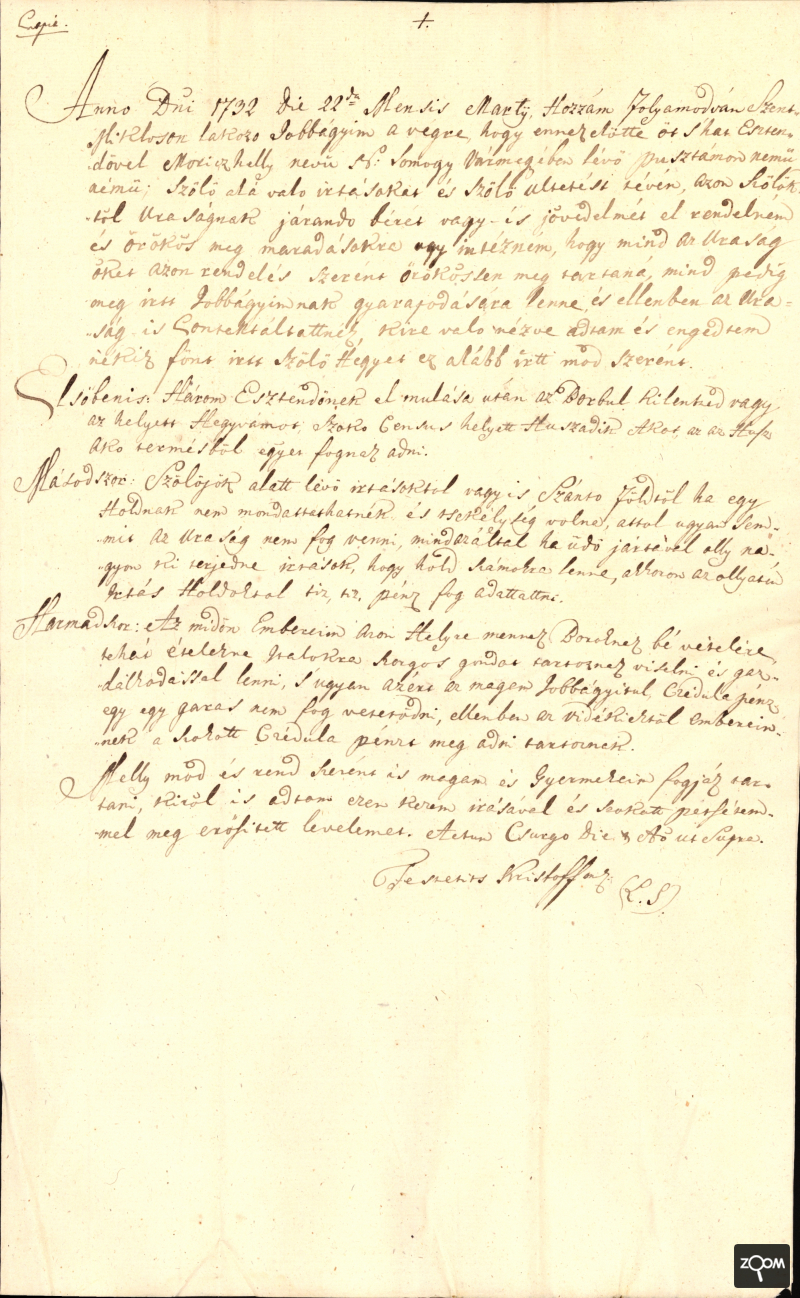 Copie.
+.
Anno Dni 1732 Die 22da Mensis Martÿ, Hozzám folyamodván Szent-
Mikloson lakozo Jobbágyim a vegre, hogy ennezelötte öt s'hat Eszten-
dövel Moriczhelly nevü N: Somogy Vármegyében lévö pusztámon nemü
nemü, Szölö alá valo irtásokat és Szölö ultetést tévén, azon Szölök
töl Uraságnak járando béret vagy is jövedelmét el rendelném
és örökös meg maradásokra ugy intézném, hogy mind az Uraság
öket azon rendelés szerent örökössen meg tartaná, mind pedig
meg irtt Jobbágyimnak gyarapodására lenne, és ellenben az Ura=
ság is Contentáltattnék, kire valo nézve adtam és engedtem
nékik fönt irtt Szölö Hegyet ez alább irtt mód szerént.
Elsöbenis: Három Esztendönek el mulása után az Borbul kilentzed vagy
az helyett Hegyvámot, Szoko Census helyett Huszadik Akot, az az Husz
Ako termésböl egyet fognak adni.
Másodszor: Szölöjök alatt lévö irtásoktol vagy is Szánto földtöl ha egy
Holdnak nem mondattathatnék és tsekélység volna, attol ugyan sem-
mit az Uraság nem fog venni, mindazáltal ha üdö jártával olly na-
gyon ki terjedne irtások, hogy hold számokra lenne, akkoron az ollyatén
Irtás Holdoktol tiz, tiz, pénz fog adattattni.
Harmadszor: Az midön Embereim azon Helyre mennek Boroknak bé vételére,
tehát ételekre Italokra szorgos gondot tartoznak viselni és gaz-
dálkodással lenni, s' ugyan azért az magam Jobbágyitul, Czédula pénz
egy egy garas nem fog vetetödni, ellenben az vidékiektöl Emberein-
nek a szokott Czédula pénzt meg adni tartoznak.
Melly mód és rend szerént is magam és Gyermekeim fogják tar-
tani, kiröl is adtam ezen kezem irásával és szokott pétsétem-
mel meg erösitett levelemet. Actum Csurgo Die & Ao ut Supra.
Festetits Kristoff mpr.
(L. S.)
ZOOM